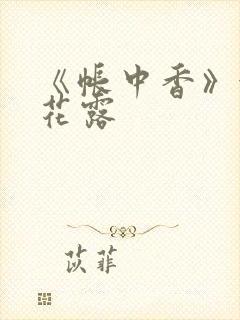 《帐中香》
花露
苡菲